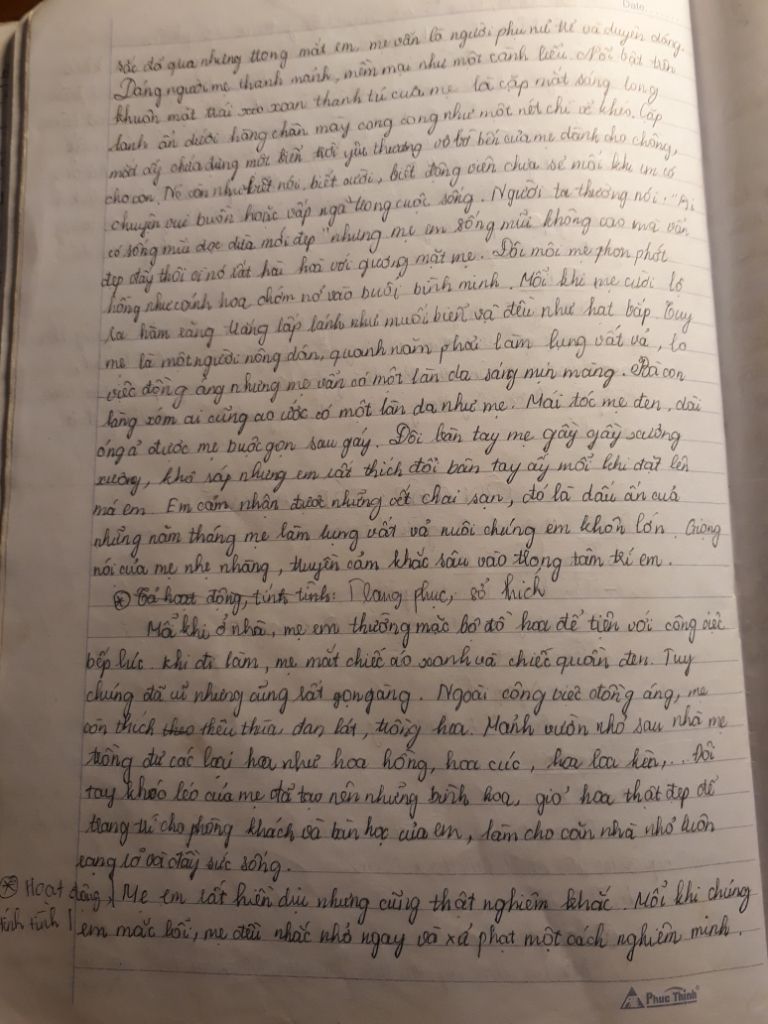 Date
sắc đã qua nhưng trong mắt em, mẹ vẫn là người phụ nữ trẻ và duyên dáng.
Dáng người mẹ thanh mảnh, mềm mại như một cành liễu. Nổi bật trên
khuôn mặt trái xoan thanh tú của mẹ là cặp mắt sáng long
lanh ẩn dưới hàng chân mày cong cong như một nét chỉ vẽ khéo. Cặp
mắt ấy chứa đựng một biển trời yêu thương vô bờ bến của mẹ dành cho chồng,
cho con. Nó còn như biết nói, biết cười, biết động viên chia sẻ mỗi khi em có
chuyện vui buồn hoặc vấp ngã trong cuộc sống. Người ta thường nói: "Ai
có sống mũi dọc dừa mới đẹp" nhưng mẹ em sống mũi không cao mà vẫn
đẹp đấy thôi vì nó rất hài hoà với gương mặt mẹ. Đôi môi mẹ phơn phớt
hồng như cánh hoa chớm nở vào buổi bình minh. Mỗi khi mẹ cười lộ
ra hàm răng trắng lấp lánh như muối biển và đều như hạt bắp. Tuy
mẹ là một người nông dân, quanh năm phải làm lụng vất vả, lo
việc đồng áng nhưng mẹ vẫn có một làn da sáng mịn màng. Bà con
làng xóm ai cũng ao ước có một làn da như mẹ. Mái tóc mẹ đen, dài
óng ả được mẹ buộc gọn sau gáy. Đôi bàn tay mẹ gầy gầy xương
xương, khô ráp nhưng em rất thích đôi bàn tay ấy mỗi khi đặt lên
má em. Em cảm nhận được những vết chai sạn, đó là dấu ấn của
những năm tháng mẹ làm lụng vất vả nuôi chúng em khôn lớn. Giọng
nói của mẹ nhẹ nhàng, truyền cảm khắc sâu vào trong tâm trí em.
* Tả hoạt động, tính tình: Trang phục, sở thích
Mỗi khi ở nhà, mẹ em thường mặc bộ đồ hoa để tiện với công việc
bếp lúc. khi đi làm, mẹ mắt chiếc áo xanh và chiếc quần đen. Tuy
chúng đã cũ nhưng cũng rất gọn gàng. Ngoài công việc đồng áng, mẹ
còn thích theo thêu thùa, đan lát, trồng hoa. Mảnh vườn nhỏ sau nhà mẹ
trồng đủ các loại hoa như hoa hồng, hoa cúc, hoa loa kèn,... Đôi
tay khéo léo của mẹ đã tạo nên những bình hoa, giỏ hoa thật đẹp để
trang trí cho phòng khách và bàn học của em, làm cho căn nhà nhỏ luôn
rạng rỡ và đầy sức sống.
* Hoạt động, Mẹ em rất hiền dịu nhưng cũng thật nghiêm khắc. Mỗi khi chúng
tính tình em mắc lỗi, mẹ đều nhắc nhở ngay và xử phạt một cách nghiêm minh.
Phuc Thinh